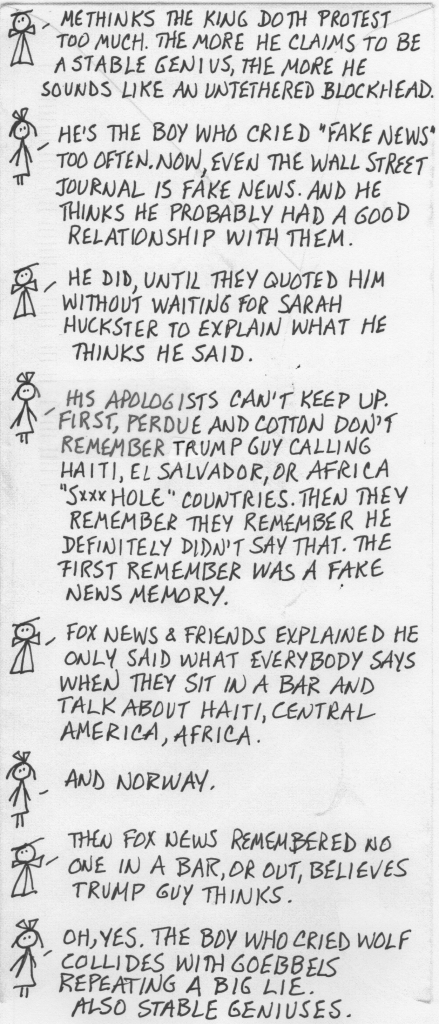 METHINKS THE KING DOTH PROTEST
TOO MUCH. THE MORE HE CLAIMS TO BE
A STABLE GENIUS, THE MORE HE
SOUNDS LIKE AN UNTETHERED BLOCKHEAD.
HE'S THE BOY WHO CRIED "FAKE NEWS"
TOO OFTEN. NOW, EVEN THE WALL STREET
JOURNAL IS FAKE NEWS. AND HE
THINKS HE PROBABLY HAD A GOOD
RELATIONSHIP WITH THEM.
HE DID, UNTIL THEY QUOTED HIM
WITHOUT WAITING FOR SARAH
HUCKSTER TO EXPLAIN WHAT HE
THINKS HE SAID.
HIS APOLOGISTS CAN'T KEEP UP.
FIRST, PERDUE AND COTTON DON'T
REMEMBER TRUMP GUY CALLING
HAITI, EL SALVADOR, OR AFRICA
"SXXX HOLE" COUNTRIES. THEN THEY
REMEMBER THEY REMEMBER HE
DEFINITELY DIDN'T SAY THAT. THE
FIRST REMEMBER WAS A FAKE
NEWS MEMORY.
FOX NEWS & FRIENDS EXPLAINED HE
ONLY SAID WHAT EVERYBODY SAYS
WHEN THEY SIT IN A BAR AND
TALK ABOUT HAITI, CENTRAL
AMERICA, AFRICA.
AND NORWAY.
THEN FOX NEWS REMEMBERED NO
ONE IN A BAR, OR OUT, BELIEVES
TRUMP GUY THINKS.
OH, YES. THE BOY WHO CRIED WOLF
COLLIDES WITH GOEBBELS
REPEATING A BIG LIE.
ALSO STABLE GENIUSES.